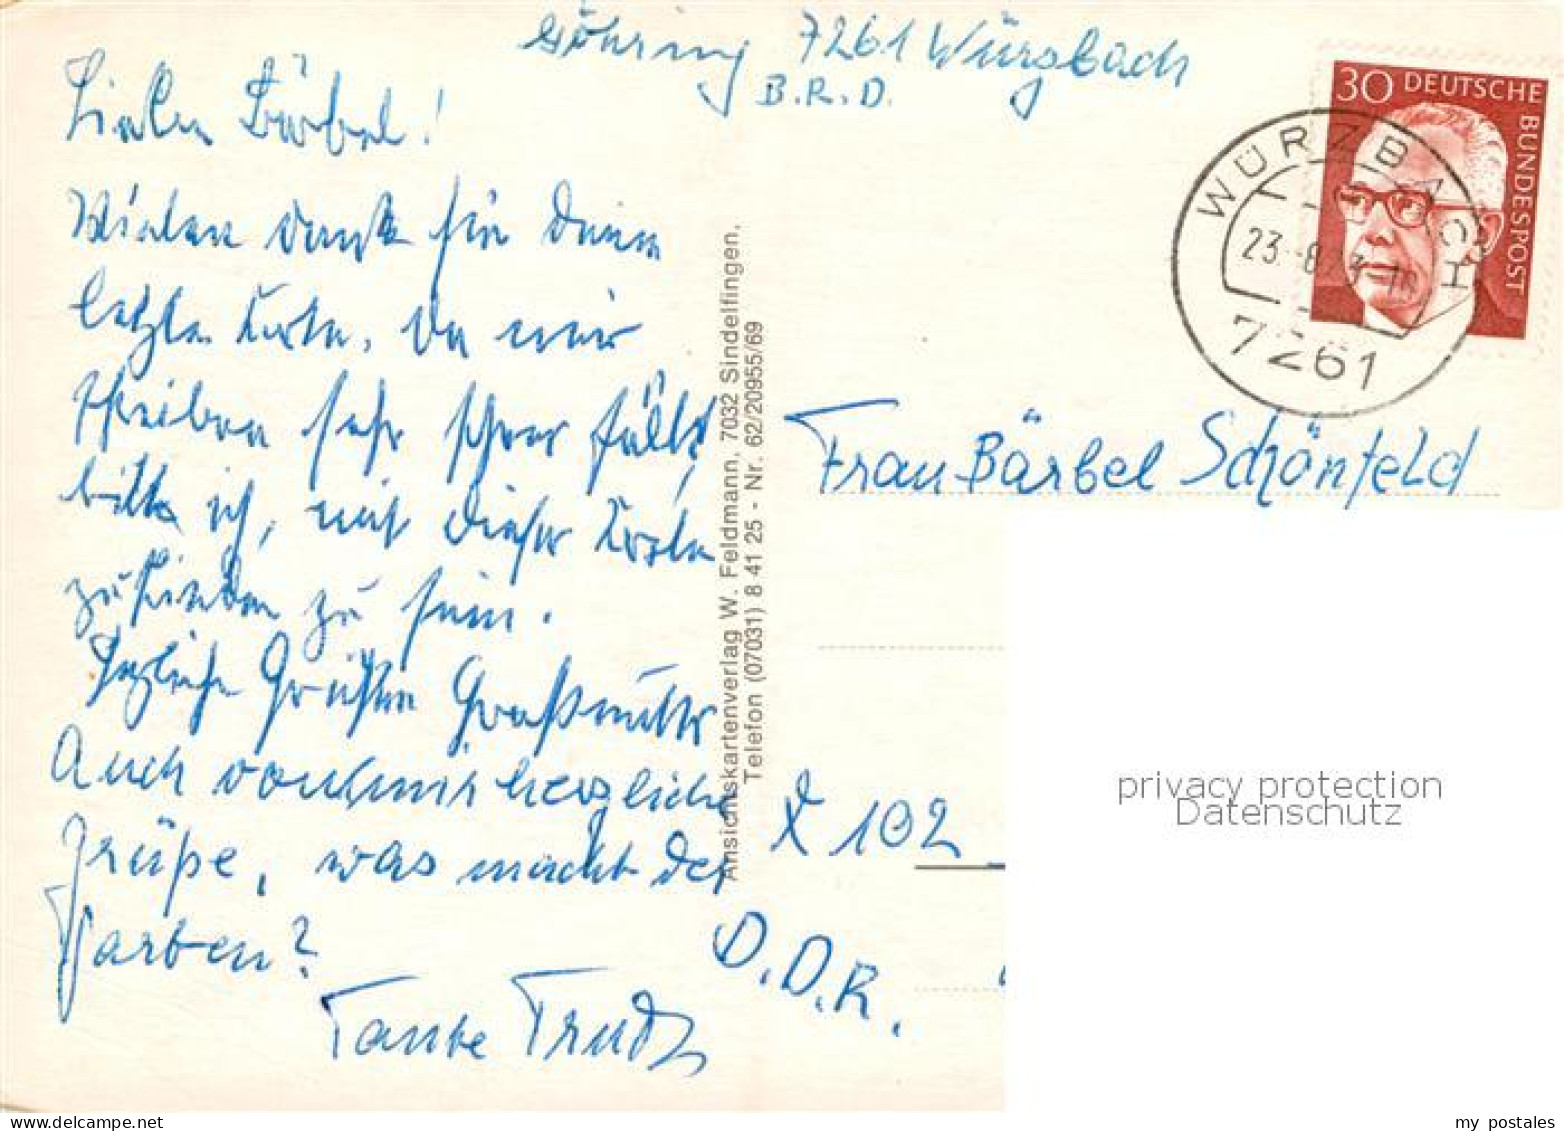 Göhring 7261 Würzbach
B.R.D.
Liebe Bärbel!
Vielen Dank für Deine
letzte Karte. Da mir
schreiben sehr schwer fällt,
bitte ich, mit dieser Karte
zufrieden zu sein.
Herzliche Grüße Großmutter
Auch von mir herzliche
Grüße, was macht der
Garten?
Tante Trudl
30 DEUTSCHE BUNDESPOST
WÜRZBACH
23.-8.
7261
Frau Bärbel Schönfeld
X 102
D.D.R.
Ansichtskartenverlag W. Feldmann, 7032 Sindelfingen,
Telefon (07031) 8 41 25 - Nr. 62/20955/69
privacy protection
Datenschutz
my postales